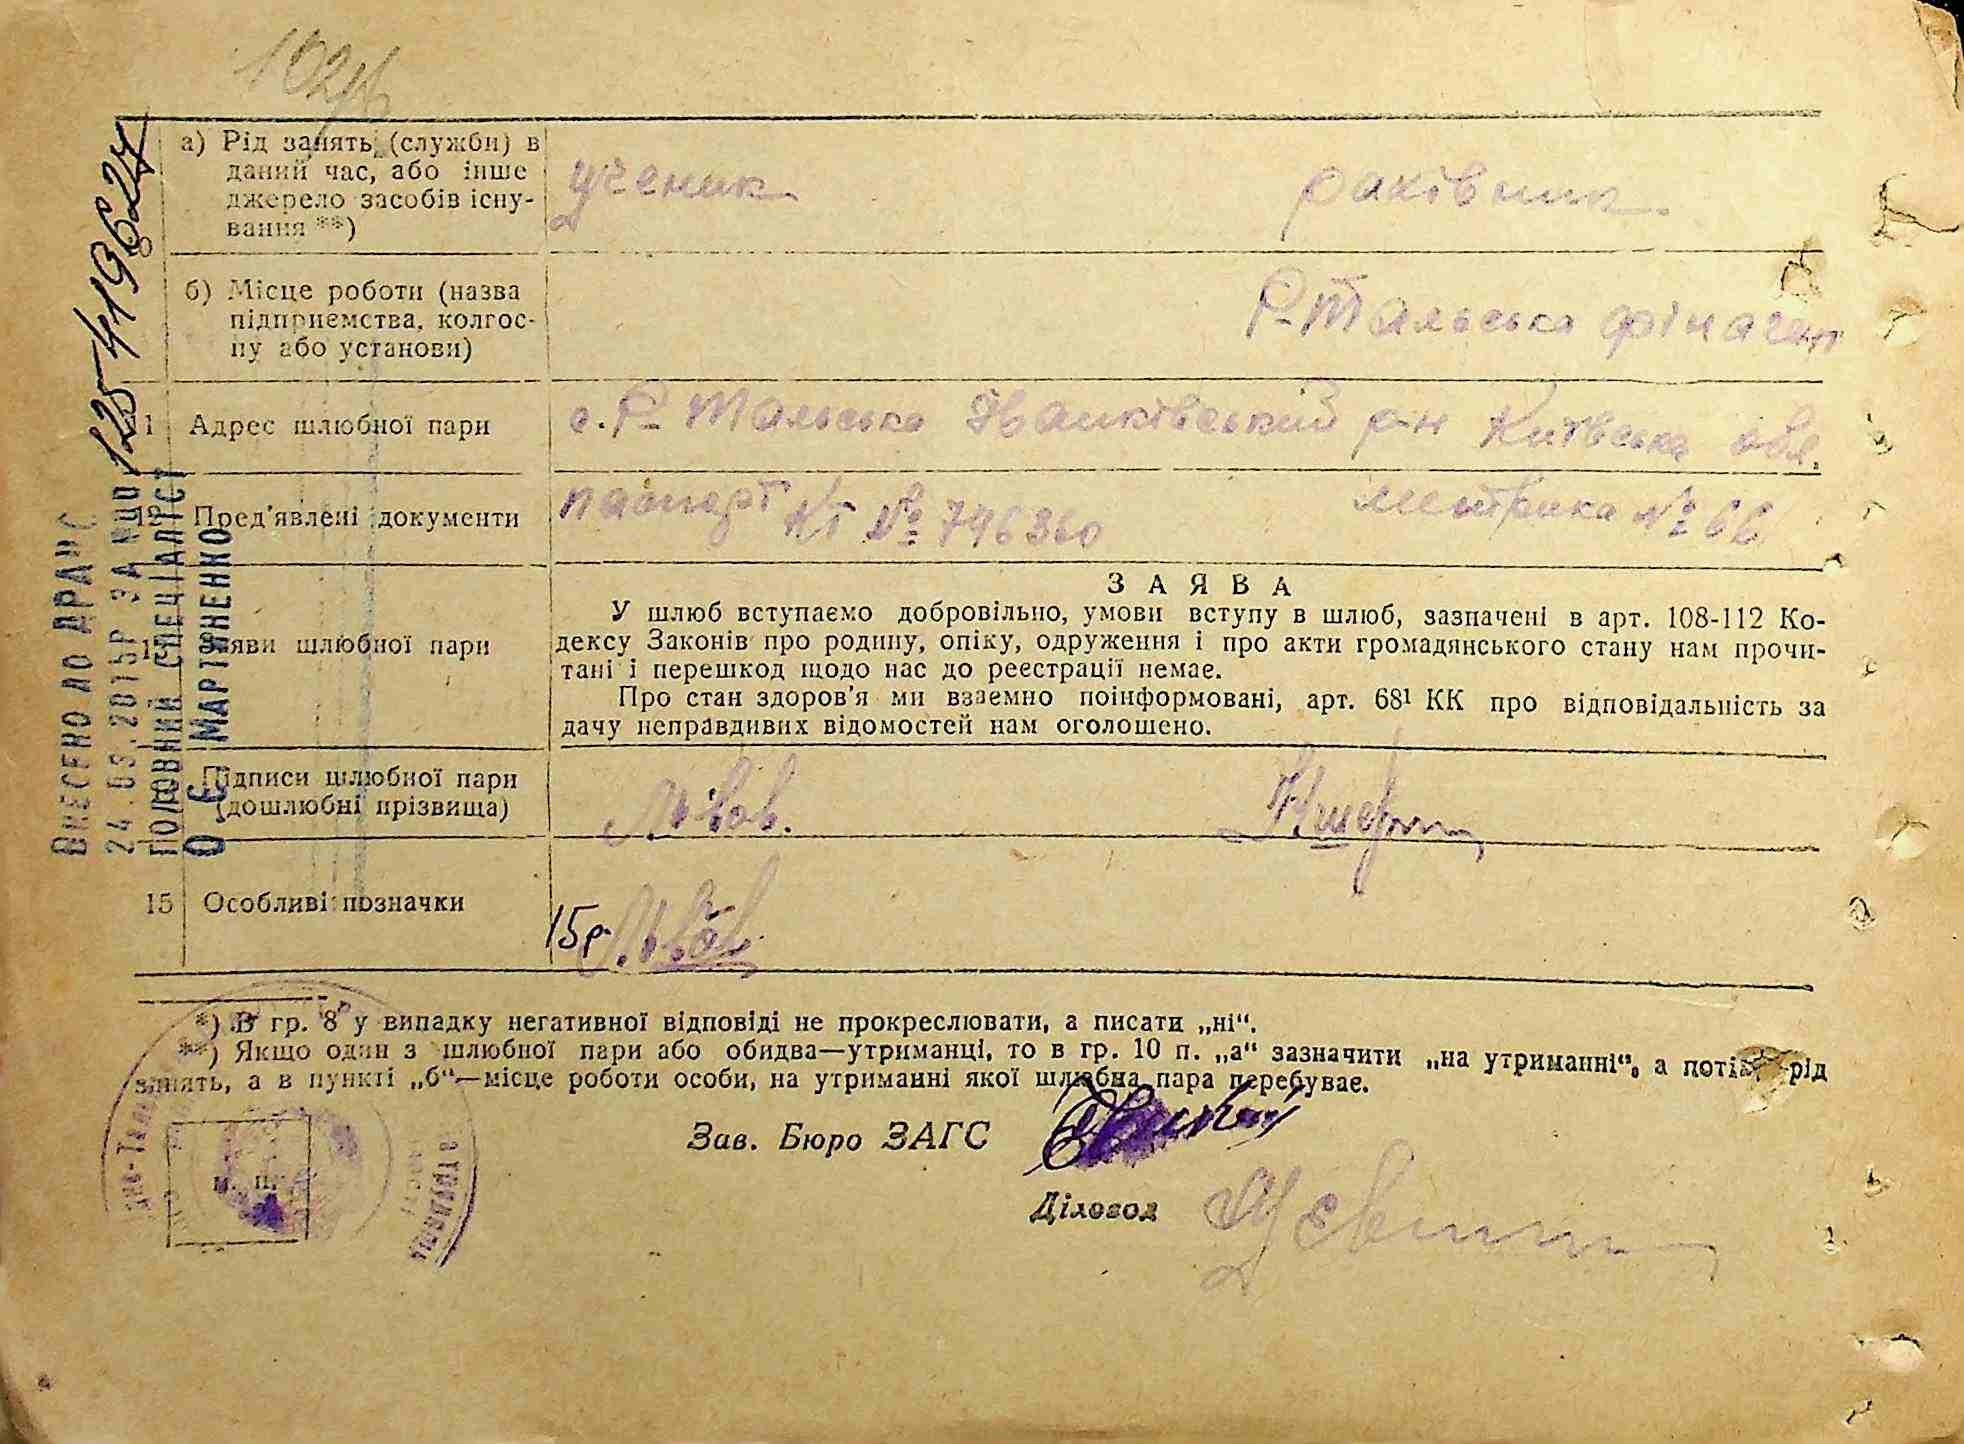 а) Рід занять (служби) в
даний час, або інше
джерело засобів існу-
вання **)
ученик
раківник
б) Місце роботи (назва
підприємства, колгос-
пу або установи)
Р-Тальська фінаген
Адрес шлюбної пари
с. Р-Тальська Іванківський р-н Київська обл.
12 Пред'явлені документи
паспорт № 746360
метрика № 66
Заяви шлюбної пари
ЗАЯВА
У шлюб вступаємо добровільно, умови вступу в шлюб, зазначені в арт. 108-112 Ко-
дексу Законів про родину, опіку, одруження і про акти громадянського стану нам прочи-
тані і перешкод щодо нас до реєстрації немає.
Про стан здоров'я ми взаємно поінформовані, арт. 68¹ КК про відповідальність за
дачу неправдивих відомостей нам оголошено.
Підписи шлюбної пари
(дошлюбні прізвища)
15 Особливі позначки
15р.
*) В гр. 8 у випадку негативної відповіді не прокреслювати, а писати „ні“.
**) Якщо один з шлюбної пари або обидва—утриманці, то в гр. 10 п. „а“ зазначити „на утриманні“, а потім рід
занять, а в пункті „б“—місце роботи особи, на утриманні якої шлюбна пара перебуває.
Зав. Бюро ЗАГС
Діловод
м. п.
ВНЕСЕНО ДО ДРАЦС
24.03.2015Р ЗА №00125419624
ГОЛОВНИЙ СПЕЦІАЛІСТ
О Є МАРТИНЕНКО